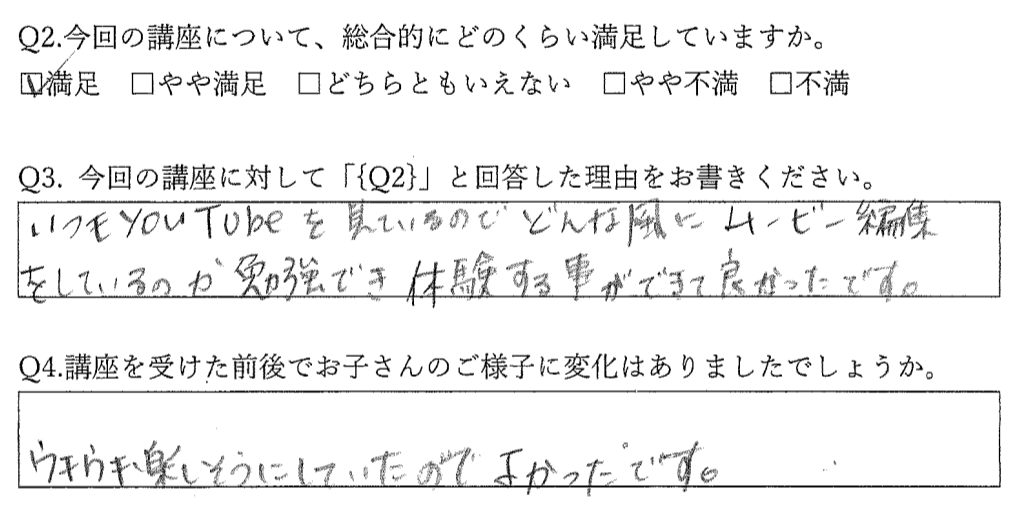 Q2.今回の講座について、総合的にどのくらい満足していますか。
☑満足 □やや満足 □どちらともいえない □やや不満 □不満
Q3. 今回の講座に対して「{Q2}」と回答した理由をお書きください。
いつもYOUTUbeを見ているのでどんな風にムービー編集
をしているのか勉強でき体験する事ができて良かったです。
Q4.講座を受けた前後でお子さんのご様子に変化はありましたでしょうか。
ウキウキ楽しそうにしていたのでよかったです。